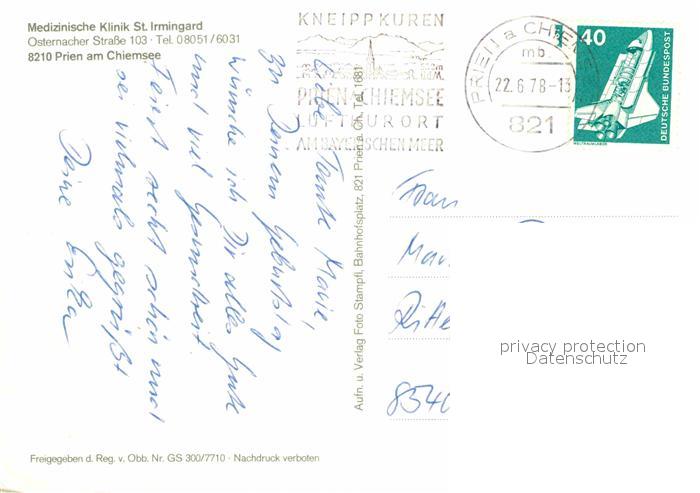 Medizinische Klinik St. Irmingard
Osternacher Straße 103 · Tel. 08051/6031
8210 Prien am Chiemsee
KNEIPPKUREN
PRIEN A CHIEMSEE
LUFTKURORT
AM BAYERISCHEN MEER
PRIEN a CHIEM
mb
22.6.78-13
821
40
DEUTSCHE BUNDESPOST
WELTRAUMLABOR
Liebe Tante Marie,
Zu Deinem Geburtstag
wünsche ich Dir alles Gute
und viel Gesundheit
Feiert recht schön und
sei vielmals gegrüßt
Deine
Aufn. u. Verlag Foto Stampfl, Bahnhofsplatz, 821 Prien a. Ch., Tel. 1681
Frau
Mar
Ritte
854
privacy protection
Datenschutz
Freigegeben d. Reg. v. Obb. Nr. GS 300/7710 · Nachdruck verboten